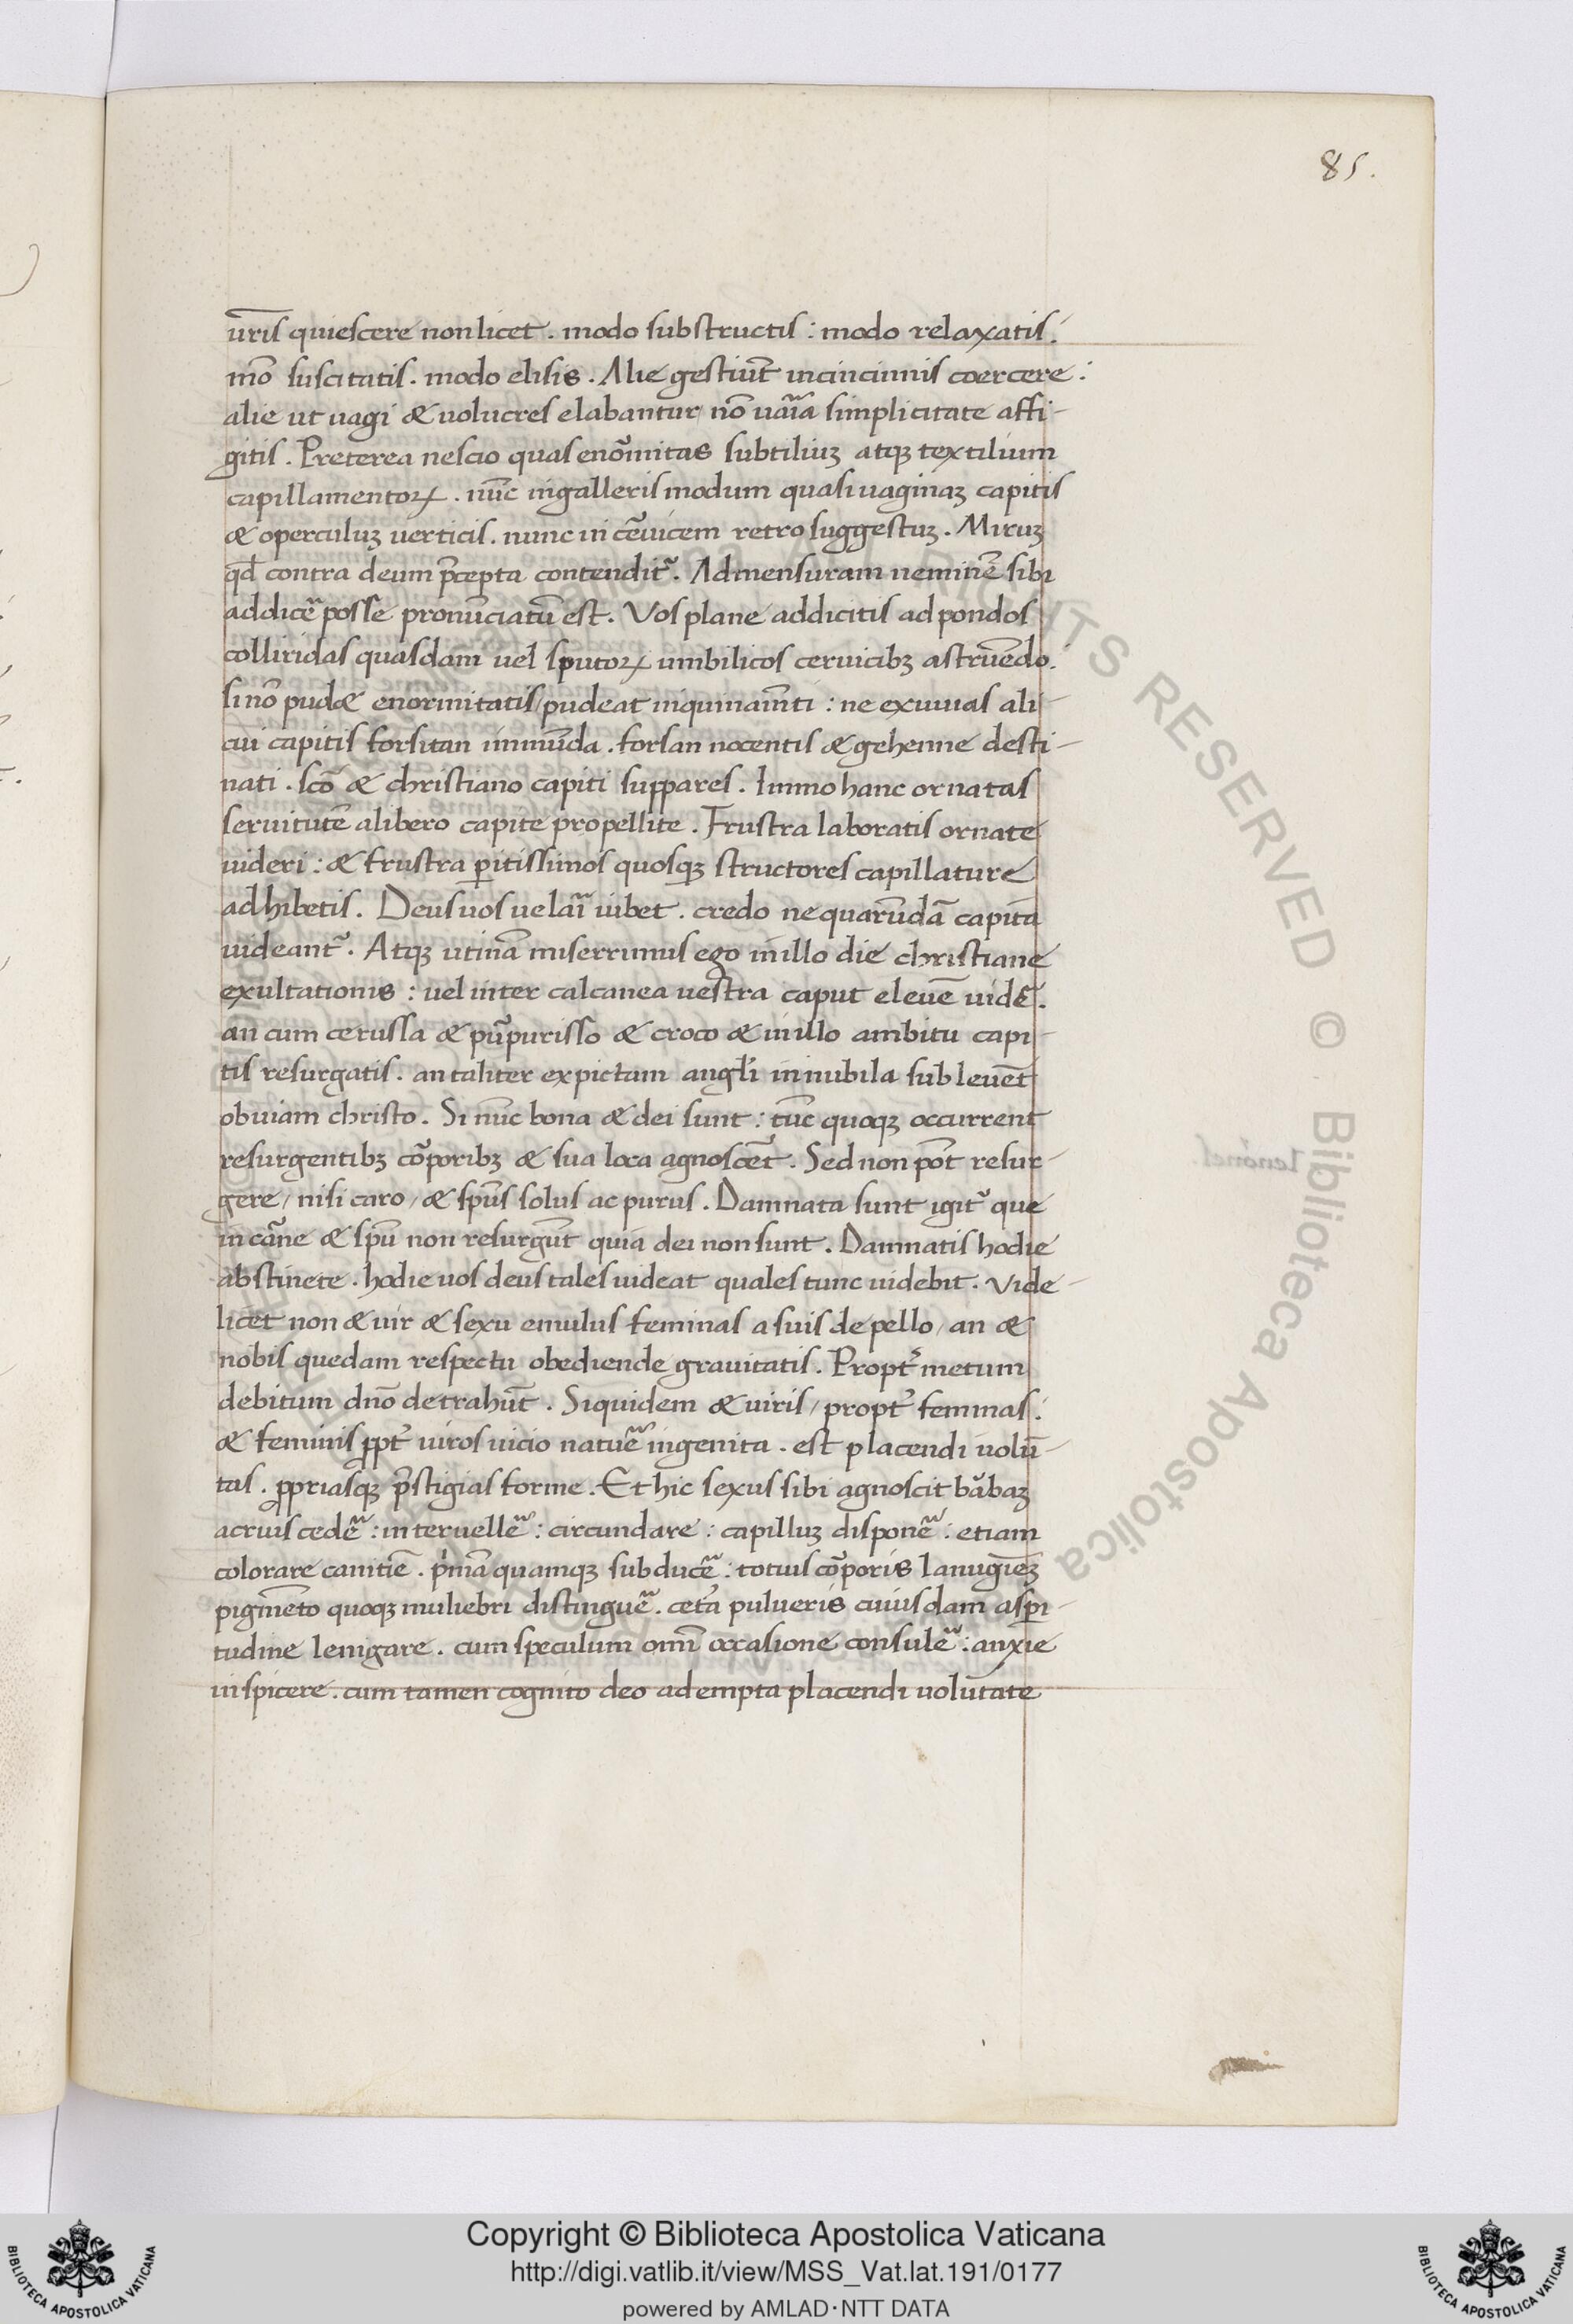 85.
ur̅is quiescere non licet . modo substructis : modo relaxatis .
mō suscitatis . modo elisis . Alie gestiūt in cincinnis coercere :
alie ut uagi & uolucres elabantur nō uaīa simplicitate affi-
gitis . Preterea nescio quas enōmitas subtiliuꝫ atqꝫ textilium
capillamentoꝝ . nūc in galleris modum quasi uaginaꝫ capitis
& operculuꝫ uerticis . nunc in cēuicem retro suggestuꝫ . Miruꝫ
qđ contra deum p̄cepta contendit᷑ . Ad mensuram neminē sibi
addicē posse pronūciatū est . Vos plane addicitis ad pondos
colliridas quasdam uel sputoꝝ umbilicos ceruicibꝫ astruēdo .
si nō pud& enormitatis / pudeat inquinam̅ti : ne exuuias ali-
cui capitis forsitan immūda . forsan nocentis & gehenne desti-
nati . scō & christiano capiti suppares . Immo hanc ornatas
seruitutē a libero capite propellite . Frustra laboratis ornate
uideri : & frustra ꝑitissimos quosqꝫ structores capillature
adhibetis . Deus uos uelaī iubet . credo ne quarūdā capita
uideant᷑ . Atqꝫ utinā miserrimus ego in illo die christiane
exultationis : uel inter calcanea uestra caput eleuē uidē .
an cum cerussa & pūpurisso & croco & in illo ambitu capi-
tis resurgatis . an taliter expictam angłi in nubila subleuēt
obuiam christo . Si nūc bona & dei sunt : tūc quoqꝫ occurrent
resurgentibꝫ cōporibꝫ & sua loca agnoscēt . Sed non pōt resur-
gere / nisi caro / & sp̄us solus ac purus . Damnata sunt igit᷑ que
in cāne & sp̄u non resurgūt quia dei non sunt . Damnatis hodie
abstinete . hodie uos deus tales uideat quales tunc uidebit . Vide-
licet non & uir & sexu emulus feminas a suis depello / an &
nobis quedam respectu obediende grauitatis . Propt᷑ metum
debitum dn̄o detrahūt . Siquidem & uiris / propt᷑ feminas .
& feminis ꝓpt᷑ uiros uicio natuē ingenita . est placendi uolū-
tas . ꝓpriasqꝫ p̄stigias forme . Et hic sexus sibi agnoscit bābaꝫ
acruis cedē : interuellē : circundare : capilluꝫ disponē : etiam
colorare canitiē . p̍mā quamqꝫ subducē : totius cōporis lanugīeꝫ
pigmēto quoqꝫ muliebri distinguē . cet᷑a pulueris cuiusdam asꝑi-
tudine leuigare . cum speculum om̄i occasione consulē : anxie
inspicere . cum tamen cognito deo adempta placendi uolūtate
RIGHTS RESERVED © Biblioteca Apostolica
Copyright © Biblioteca Apostolica Vaticana
http://digi.vatlib.it/view/MSS_Vat.lat.191/0177
powered by AMLAD·NTT DATA
BIBLIOTECA APOSTOLICA VATICANA
BIBLIOTECA APOSTOLICA VATICANA